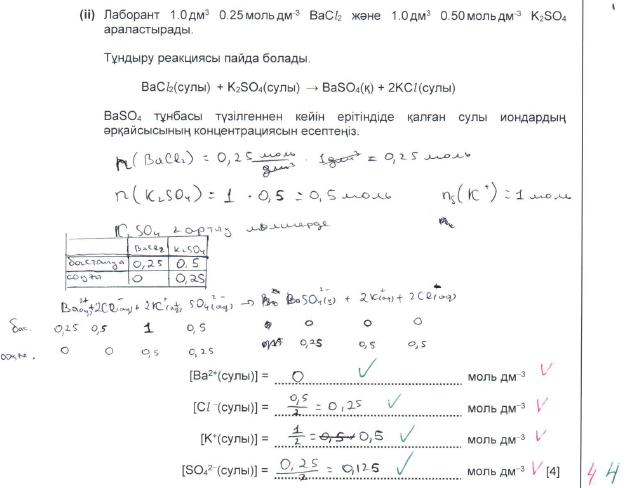 (ii) Лаборант 1.0 дм³ 0.25 моль дм⁻³ BaCl₂ және 1.0 дм³ 0.50 моль дм⁻³ K₂SO₄
араластырады.
Тұндыру реакциясы пайда болады.
BaCl₂(сулы) + K₂SO₄(сулы) → BaSO₄(қ) + 2KCl(сулы)
BaSO₄ тұнбасы түзілгеннен кейін ерітіндіде қалған сулы иондардың
әрқайсысының концентрациясын есептеңіз.
n(BaCl₂) = 0,25 моль/дм³ · 1дм³ = 0,25 моль
n(K₂SO₄) = 1 · 0,5 = 0,5 моль n₅(K⁺) = 1 моль
K₂SO₄ артық мөлшерде
BaCl₂ K₂SO₄
бастапқы 0,25 0.5
соңғы 0 0,25
Ba²⁺(aq) + 2Cl⁻(aq) + 2K⁺(aq) + SO₄²⁻(aq) → BaSO₄(s) + 2K⁺(aq) + 2Cl⁻(aq)
бас. 0,25 0,5 1 0,5 0 0 0
0 0 0,5 0,25 0,25 0,5 0,5
[Ba²⁺(сулы)] = 0 ✓ моль дм⁻³ ✓
[Cl⁻(сулы)] = 0,5/2 = 0,25 ✓ моль дм⁻³ ✓
[K⁺(сулы)] = 1/2 = 0,5 0,5 ✓ моль дм⁻³ ✓
[SO₄²⁻(сулы)] = 0,25/2 = 0,125 ✓ моль дм⁻³ ✓ [4] 4 4